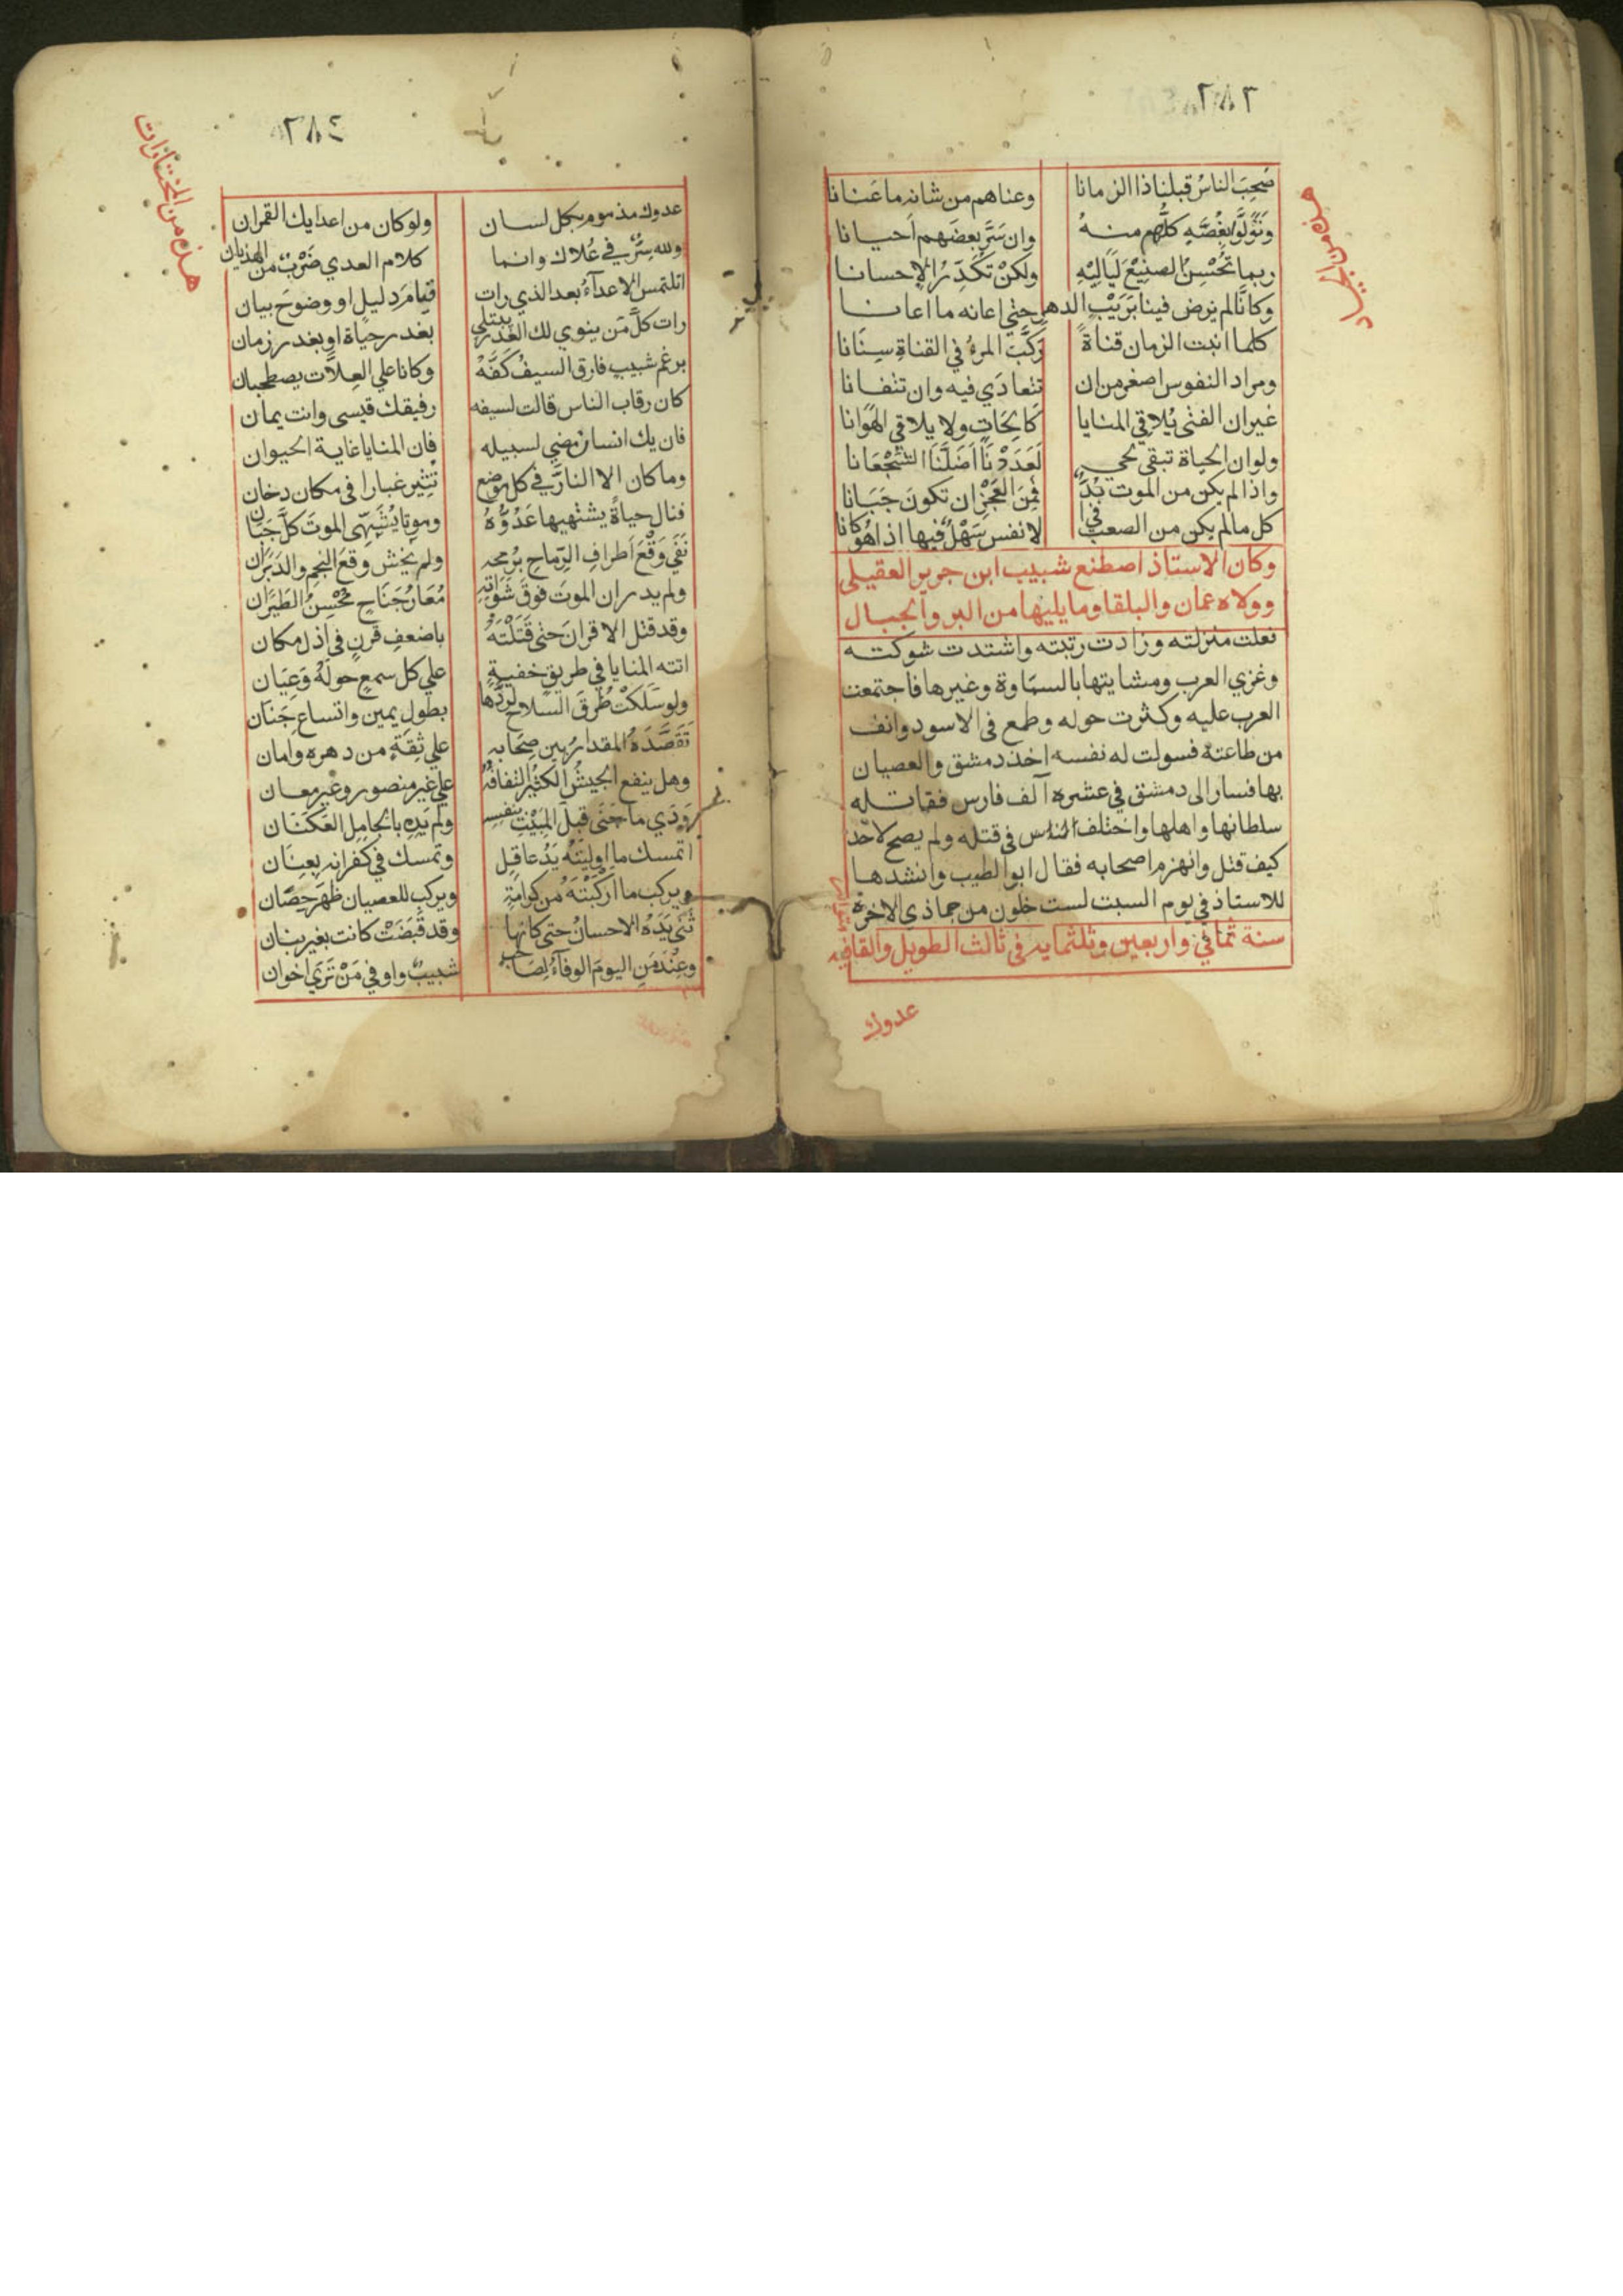 ٢٨٣
هذه من الجياد
صَحِبَ الناسُ قبلنا ذا الزمانا وعناهم من شانِه ما عَنانا
وَتَوَلَّوْا بِغُصَّةٍ كلُّهم منهُ وان سَرَّ بعضَهم اَحيانا
ربما تُحْسِنُ الصنِيْعَ لَيَالِيْهِ ولكنْ تُكَدِّرُ الاِحسانا
وكانَّا لم يرض فينا بَرَيْبِ الدهر حتي اعانه ما اعانا
كلما انبت الزمان قناةً رَكَّبَ المرءُ في القناةِ سِنَانا
ومراد النفوس اصغر من ان تتعادَي فيه وان تتفانا
غير ان الفتى يُلاقِي المنايا كالحاتٍ ولا يلاقي الهَوَانا
ولو ان الحياة تبقى لحيٍ لَعَدَدْنَا اَضَلَّنَا الشُجْعَانا
واذا لم يكن من الموت بُدٌّ فَمِنَ العَجْزِ ان تكونَ جَبَانا
كل ما لم يكن من الصعب في الانفس سَهْلٌ فيها اذا هُو كانا
وكان الاستاذ اصطنع شبيب ابن جرير العقيلي
وولاه عمان والبلقا وما يليها من البر والجبال
فعلت منزلته وزادت رتبته واشتدت شوكته
وغزي العرب ومشايتها بالسماوة وغيرها فاجتمعت
العرب عليه وكثرت حوله وطمع فى الاسود وانف
من طاعته فسولت له نفسه اخذ دمشق والعصيان
بها فسار الى دمشق في عشرة آلف فارس فقاتله
سلطانها واهلها واختلف الناس في قتله ولم يصح لاحد
كيف قتل وانهزم اصحابه فقال ابو الطيب وانشدها
للاستاذ في يوم السبت لست خلون من جماذي الاخرة
سنة ثماني واربعين وثلثمايه في ثالث الطويل والقافيه
عدوك
٢٨٤
هذه من المختارات
عدوك مذموم بكل لسان ولو كان من اعدايك القمران
ولله سِرٌّ في عُلاك وانما كلام العدي ضَرْبٌ من الهذيان
اتلتمس الاعدآءُ بعد الذي رات قيامَ دليلٍ او وضوحَ بيان
رات كلَّ مَن ينوي لك الغدرَ يبتلي بغدر حياة او بغدر زمان
برغم شبيب فارق السيفُ كَفَّهُ وكانا علي العِلَّات يصطحبان
كان رقاب الناس قالت لسيفه رفيقك قيسى وانت يمان
فان يك انسان مضي لسبيله فان المنايا غاية الحيوان
وما كان الا النارَ في كل موضع تُثِير غبارا فى مكان دخان
فنال حياةً يشتهيها عَدُوُّهُ وموتا يُشَهِّى الموتَ كلَّ جَبان
نَفَي وَقْعَ اَطرافِ الرِّماحِ برُمحه ولم يخش وقعَ النجم والدَبَرَان
ولم يدر ان الموتَ فوقَ شَوَاتِهِ مُعَارُ جَنَاحٍ مُحْسِنُ الطَيَرَان
وقد قتل الاقرانَ حتى قَتَلْتَهُ باضعفِ قرنٍ في اذل مكان
اتته المنايا في طريق خفيةٍ علي كل سمعٍ حولَهُ وَعِيَان
ولو سَلَكَتْ طُرقَ السلاح لردَّها بطول يمين واتساع جَنَان
تَقَصَّدَهُ المقدارُ بين صِحَابِه علي ثِقَةٍ من دهره وامان
وهل ينفع الجيشُ الكثيرُ التفافُهُ علي غير منصور وغير معان
وَدَي ما جَنَى قبلَ المَبِيْتِ بنفسِه ولم يَدِهِ بالجامِلِ العَكَنَان
اتمسك ما اوليتَهُ يَدُ عاقِلٍ وتمسك في كفرانه بِعِنَان
ويركب ما اَرْكَبْتَهُ من كرامَةٍ ويركب للعصيان ظَهَرَ حِصَان
ثَنَي يَدَهُ الاحسانُ حتى كانها وقد قُبِضَتْ كانت بغير بنان
وعِنْدَ مَنِ اليومَ الوفآءُ لِصَاحبٍ شبيبٌ واوفي مَنْ تَرَي اخوان